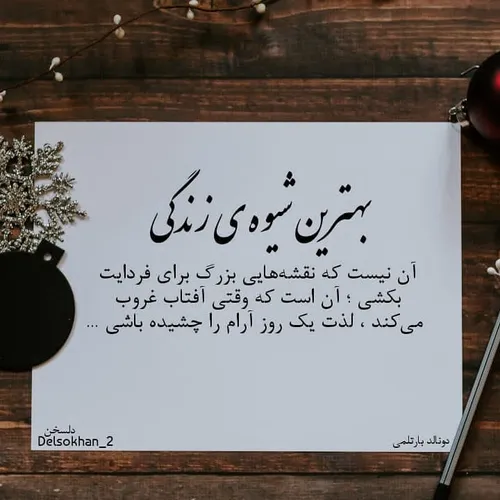 بهترین شیوه ی زندگی
آن نیست که نقشه‌هایی بزرگ برای فردایت
بکشی ؛ آن است که وقتی آفتاب غروب
می‌کند ، لذت یک روز آرام را چشیده باشی ...
دلسخن
Delsokhan_2
دونالد بارتلمی